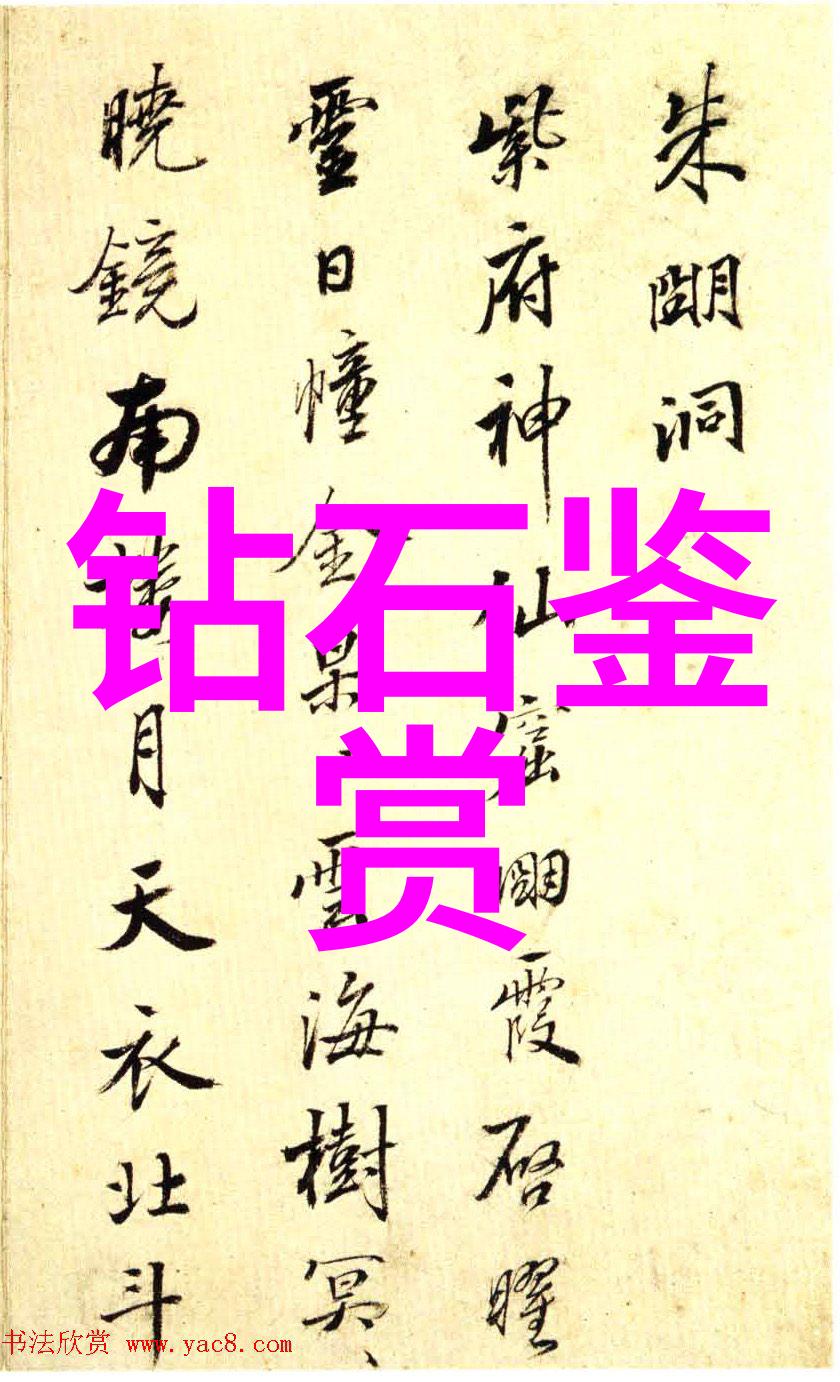 朱朙洞
紫府神仙窟朙霞啓曜
靈日幢金杲、雲海樹冥、
曉鏡南月天衣北斗
钻石鉴
赏
书法欣赏 www.yac8.com